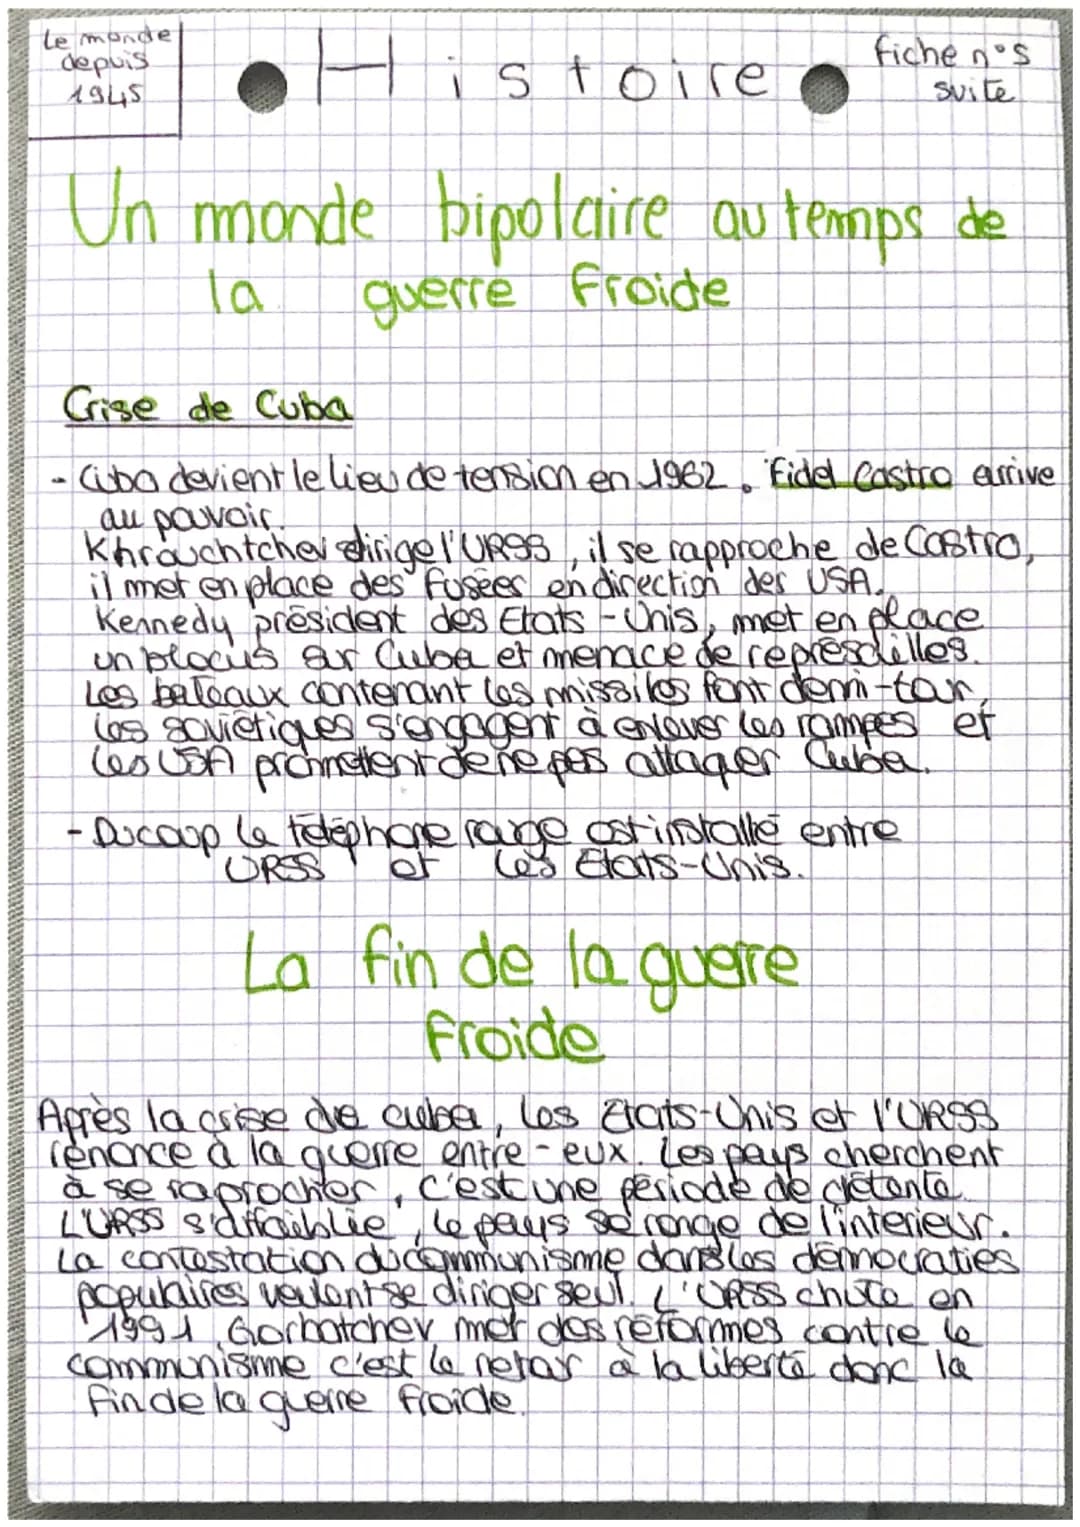 Le monde
depuis
1945
Histoire
fiche n°5
suite
Un monde bipolaire au temps de
la guerre froide
Crise de Cuba
- Cuba devient le lieu de tension en 1962. Fidel Castro arrive
au pouvoir.
Khrouchtchev dirige l'URSS, il se rapproche de Castro,
il met en place des fusées en direction des USA.
Kennedy président des Etats-Unis, met en place
un blocus sur Cuba et menace de represailles.
Les bateaux contenant les missiles font demi-tour,
les soviétiques s'engagent à enlever les rampes et
les USA promettent de ne pas attaquer Cuba.
- Ducoup le téléphone rouge est installé entre
URSS et les Etats-Unis.
La fin de la guerre
froide
Après la crise de cuba, les Etats-Unis et l'URSS
renonce à la guerre entre-eux. Les pays cherchent
à se raprocher, c'est une période de détente.
L'URSS s'affaiblie, le pays se ronge de l'interieur.
La contestation du communisme dans les démocraties
populaires veulent se diriger seul. L'URSS chute en
1991, Gorbatchev met des réformes contre le
communisme c'est le retour à la liberté donc la
fin de la guerre froide.